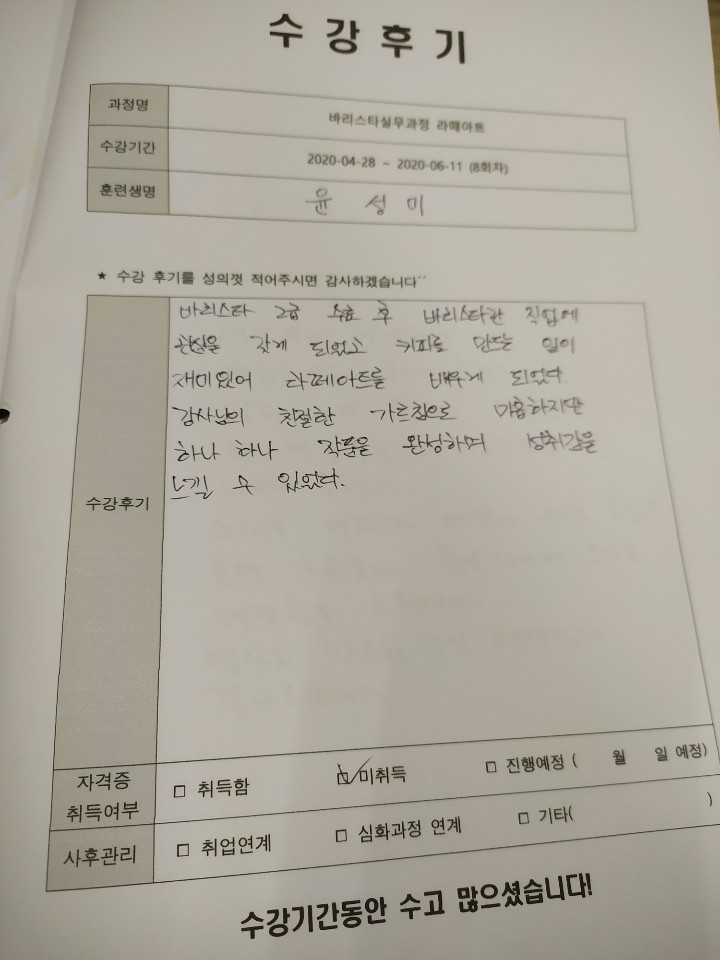 수 강 후 기
과정명 바리스타실무과정 라떼아트
수강기간 2020-04-28 ~ 2020-06-11 (8회차)
훈련생명 윤 성 미
★ 수강 후기를 성의껏 적어주시면 감사하겠습니다~~
바리스타 2급 수료 후 바리스타란 직업에
관심을 갖게 되었고 커피로 만드는 일이
재미있어 라떼아트를 배우게 되었다
강사님의 친절한 가르침으로 미흡하지만
하나 하나 작품을 완성하며 성취감을
느낄 수 있었다.
수강후기
자격증 취득여부 □ 취득함 ☑ 미취득 □ 진행예정 ( 월 일 예정)
사후관리 □ 취업연계 □ 심화과정 연계 □ 기타( )
수강기간동안 수고 많으셨습니다!